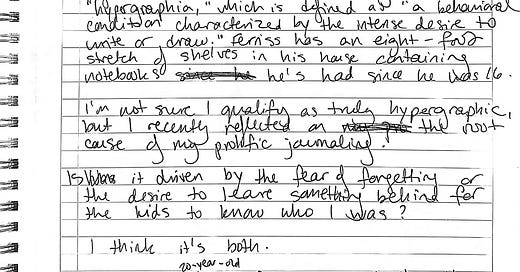 "hypergraphia," which is defined as "a behavioral
condition characterized by the intense desire to
write or draw." Ferriss has an eight-foot
stretch of shelves in his house containing
notebooks since he he's had since he was 16.
I'm not sure I qualify as truly hypergraphic,
but I recently reflected on the root
cause of my prolific journaling.
Is it driven by the fear of forgetting or
the desire to leave something behind for
the kids to know who I was?
I think it's both.
20-year-old